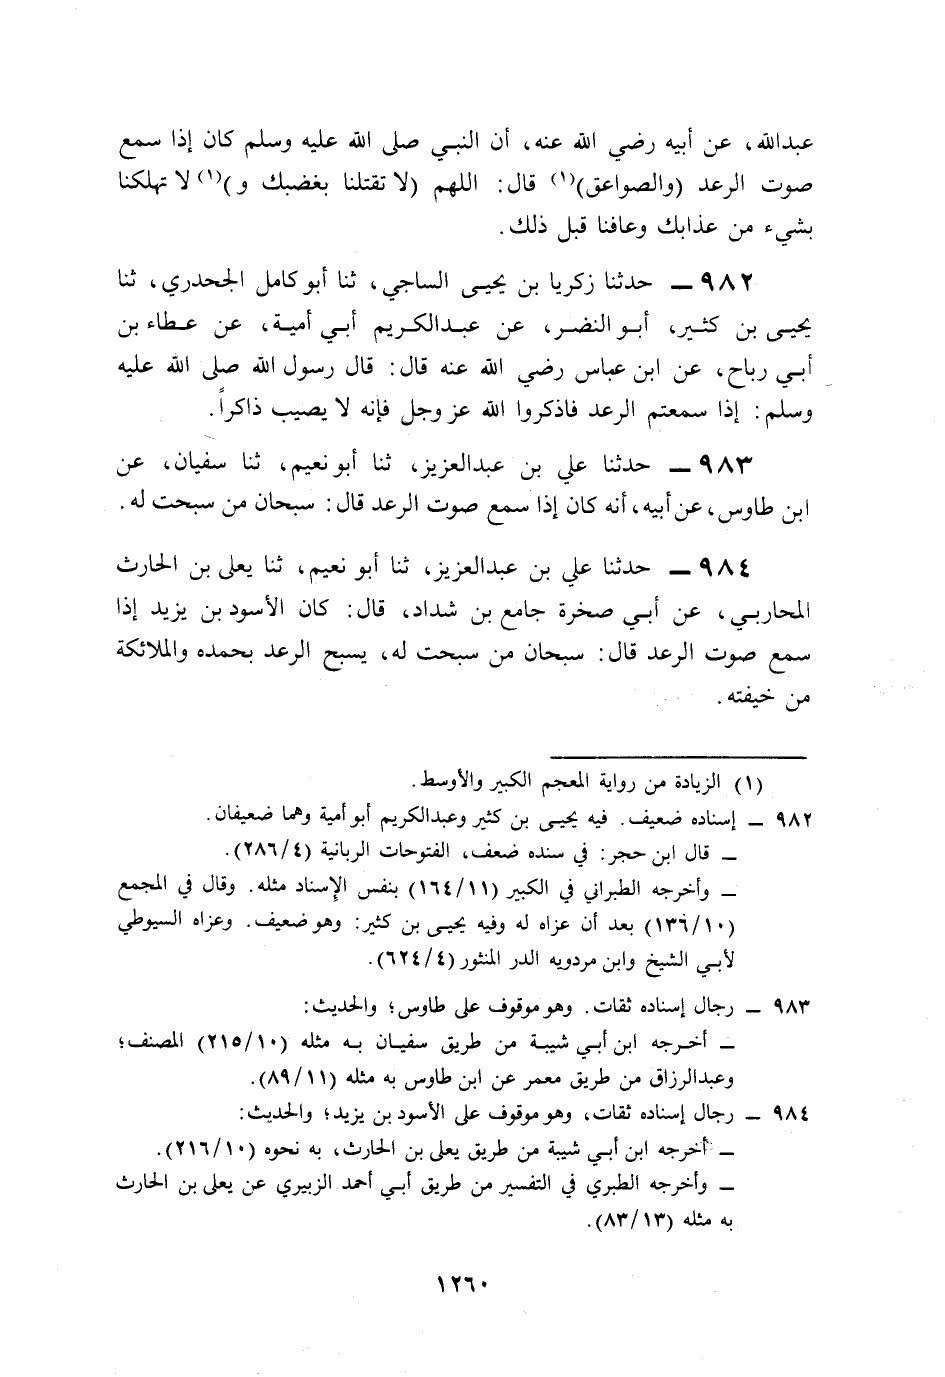 عبدالله، عن أبيه رضي الله عنه، أن النبي صلى الله عليه وسلم كان إذا سمع
صوت الرعد (والصواعق)(١) قال: اللهم (لا تقتلنا بغضبك و)(١) لا تهلكنا
بشيء من عذابك وعافنا قبل ذلك.
٩٨٢ ــ حدثنا زكريا بن يحيى الساجي، ثنا أبو كامل الجحدري، ثنا
يحيى بن كثير، أبو النضر، عن عبدالكريم أبي أمية، عن عطاء بن
أبي رباح، عن ابن عباس رضي الله عنه قال: قال رسول الله صلى الله عليه
وسلم: إذا سمعتم الرعد فاذكروا الله عز وجل فإنه لا يصيب ذاكراً.
٩٨٣ ــ حدثنا علي بن عبدالعزيز، ثنا أبو نعيم، ثنا سفيان، عن
ابن طاوس، عن أبيه، أنه كان إذا سمع صوت الرعد قال: سبحان من سبحت له.
٩٨٤ ــ حدثنا علي بن عبدالعزيز، ثنا أبو نعيم، ثنا يعلى بن الحارث
المحاربي، عن أبي صخرة جامع بن شداد، قال: كان الأسود بن يزيد إذا
سمع صوت الرعد قال: سبحان من سبحت له، يسبح الرعد بحمده والملائكة
من خيفته.
(١) الزيادة من رواية المعجم الكبير والأوسط.
٩٨٢ ــ إسناده ضعيف. فيه يحيى بن كثير وعبدالكريم أبو أمية وهما ضعيفان.
ــ قال ابن حجر: في سنده ضعف، الفتوحات الربانية (٢٨٦/٤).
ــ وأخرجه الطبراني في الكبير (١٦٤/١١) بنفس الإسناد مثله. وقال في المجمع
(١٣٦/١٠) بعد أن عزاه له وفيه يحيى بن كثير: وهو ضعيف. وعزاه السيوطي
لأبي الشيخ وابن مردويه الدر المنثور (٦٢٤/٤).
٩٨٣ ــ رجال إسناده ثقات. وهو موقوف على طاوس؛ والحديث:
ــ أخرجه ابن أبي شيبة من طريق سفيان به مثله (٢١٥/١٠) المصنف؛
وعبدالرزاق من طريق معمر عن ابن طاوس به مثله (٨٩/١١).
٩٨٤ ــ رجال إسناده ثقات، وهو موقوف على الأسود بن يزيد؛ والحديث:
ــ أخرجه ابن أبي شيبة من طريق يعلى بن الحارث، به نحوه (٢١٦/١٠).
ــ وأخرجه الطبري في التفسير من طريق أبي أحمد الزبيري عن يعلى بن الحارث
به مثله (٨٣/١٣).
١٢٦٠